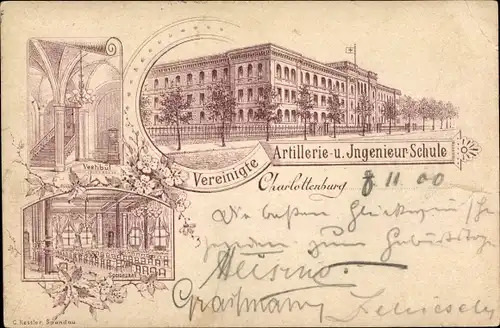 Vestibul
Speisesaal
Vereinigte
Artillerie- u. Jngenieur-Schule
Charlottenburg 8 11 00
Die besten Glückwünsche
senden zum Geburtstage
C. Kessler, Spandau